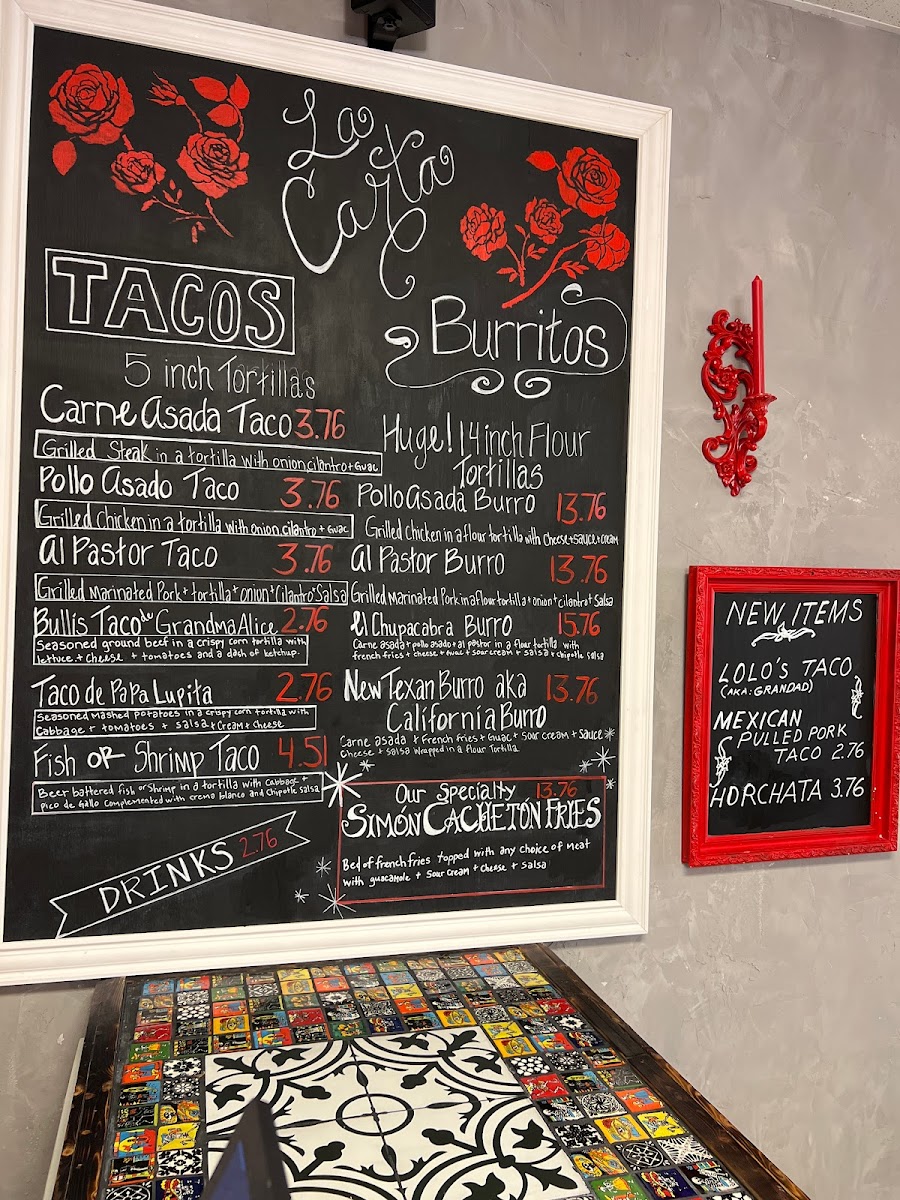 La
Carta
TACOS
5 inch Tortillas
Carne Asada Taco 3.76
Grilled Steak in a tortilla with onion cilantro + Guac
Pollo Asado Taco 3.76
Grilled Chicken in a tortilla with onion cilantro + Guac
Al Pastor Taco 3.76
Grilled Marinated Pork + tortilla + onion + Cilantro + Salsa
Bullis Taco de Grandma Alice 2.76
Seasoned ground beef in a crispy corn tortilla with
lettuce + Cheese + tomatoes and a dash of ketchup.
Taco de Papa Lupita 2.76
Seasoned Mashed potatoes in a crispy corn tortilla with
Cabbage + tomatoes + salsa + Cream + Cheese
Fish OR Shrimp Taco 4.51
Beer battered fish or Shrimp in a tortilla with Cabbage +
pico de Gallo complemented with crema blanco and Chipotle salsa
DRINKS 2.76
Burritos
Huge! 14 inch Flour
Tortillas
Pollo Asada Burro 13.76
Grilled Chicken in a flour tortilla with Cheese + sauce + cream
Al Pastor Burro 13.76
Grilled Marinated Pork in a flour tortilla + onion + cilantro + Salsa
El Chupacabra Burro 15.76
Carne asada + pollo asado + al pastor in a flour tortilla with
french fries + cheese + Guac + Sour cream + salsa + chipotle salsa
New Texan Burro aka 13.76
California Burro
Carne asada + French fries + Guac + Sour cream + Sauce
Cheese + Salsa Wrapped in a Flour Tortilla
Our Specialty 13.76
SIMÓN CACHETÓN FRIES
Bed of french fries topped with any choice of meat
with guacamole + Sour Cream + Cheese + Salsa
NEW ITEMS
LOLO'S TACO
(AKA: GRANDAD)
MEXICAN
PULLED PORK
TACO 2.76
HORCHATA 3.76